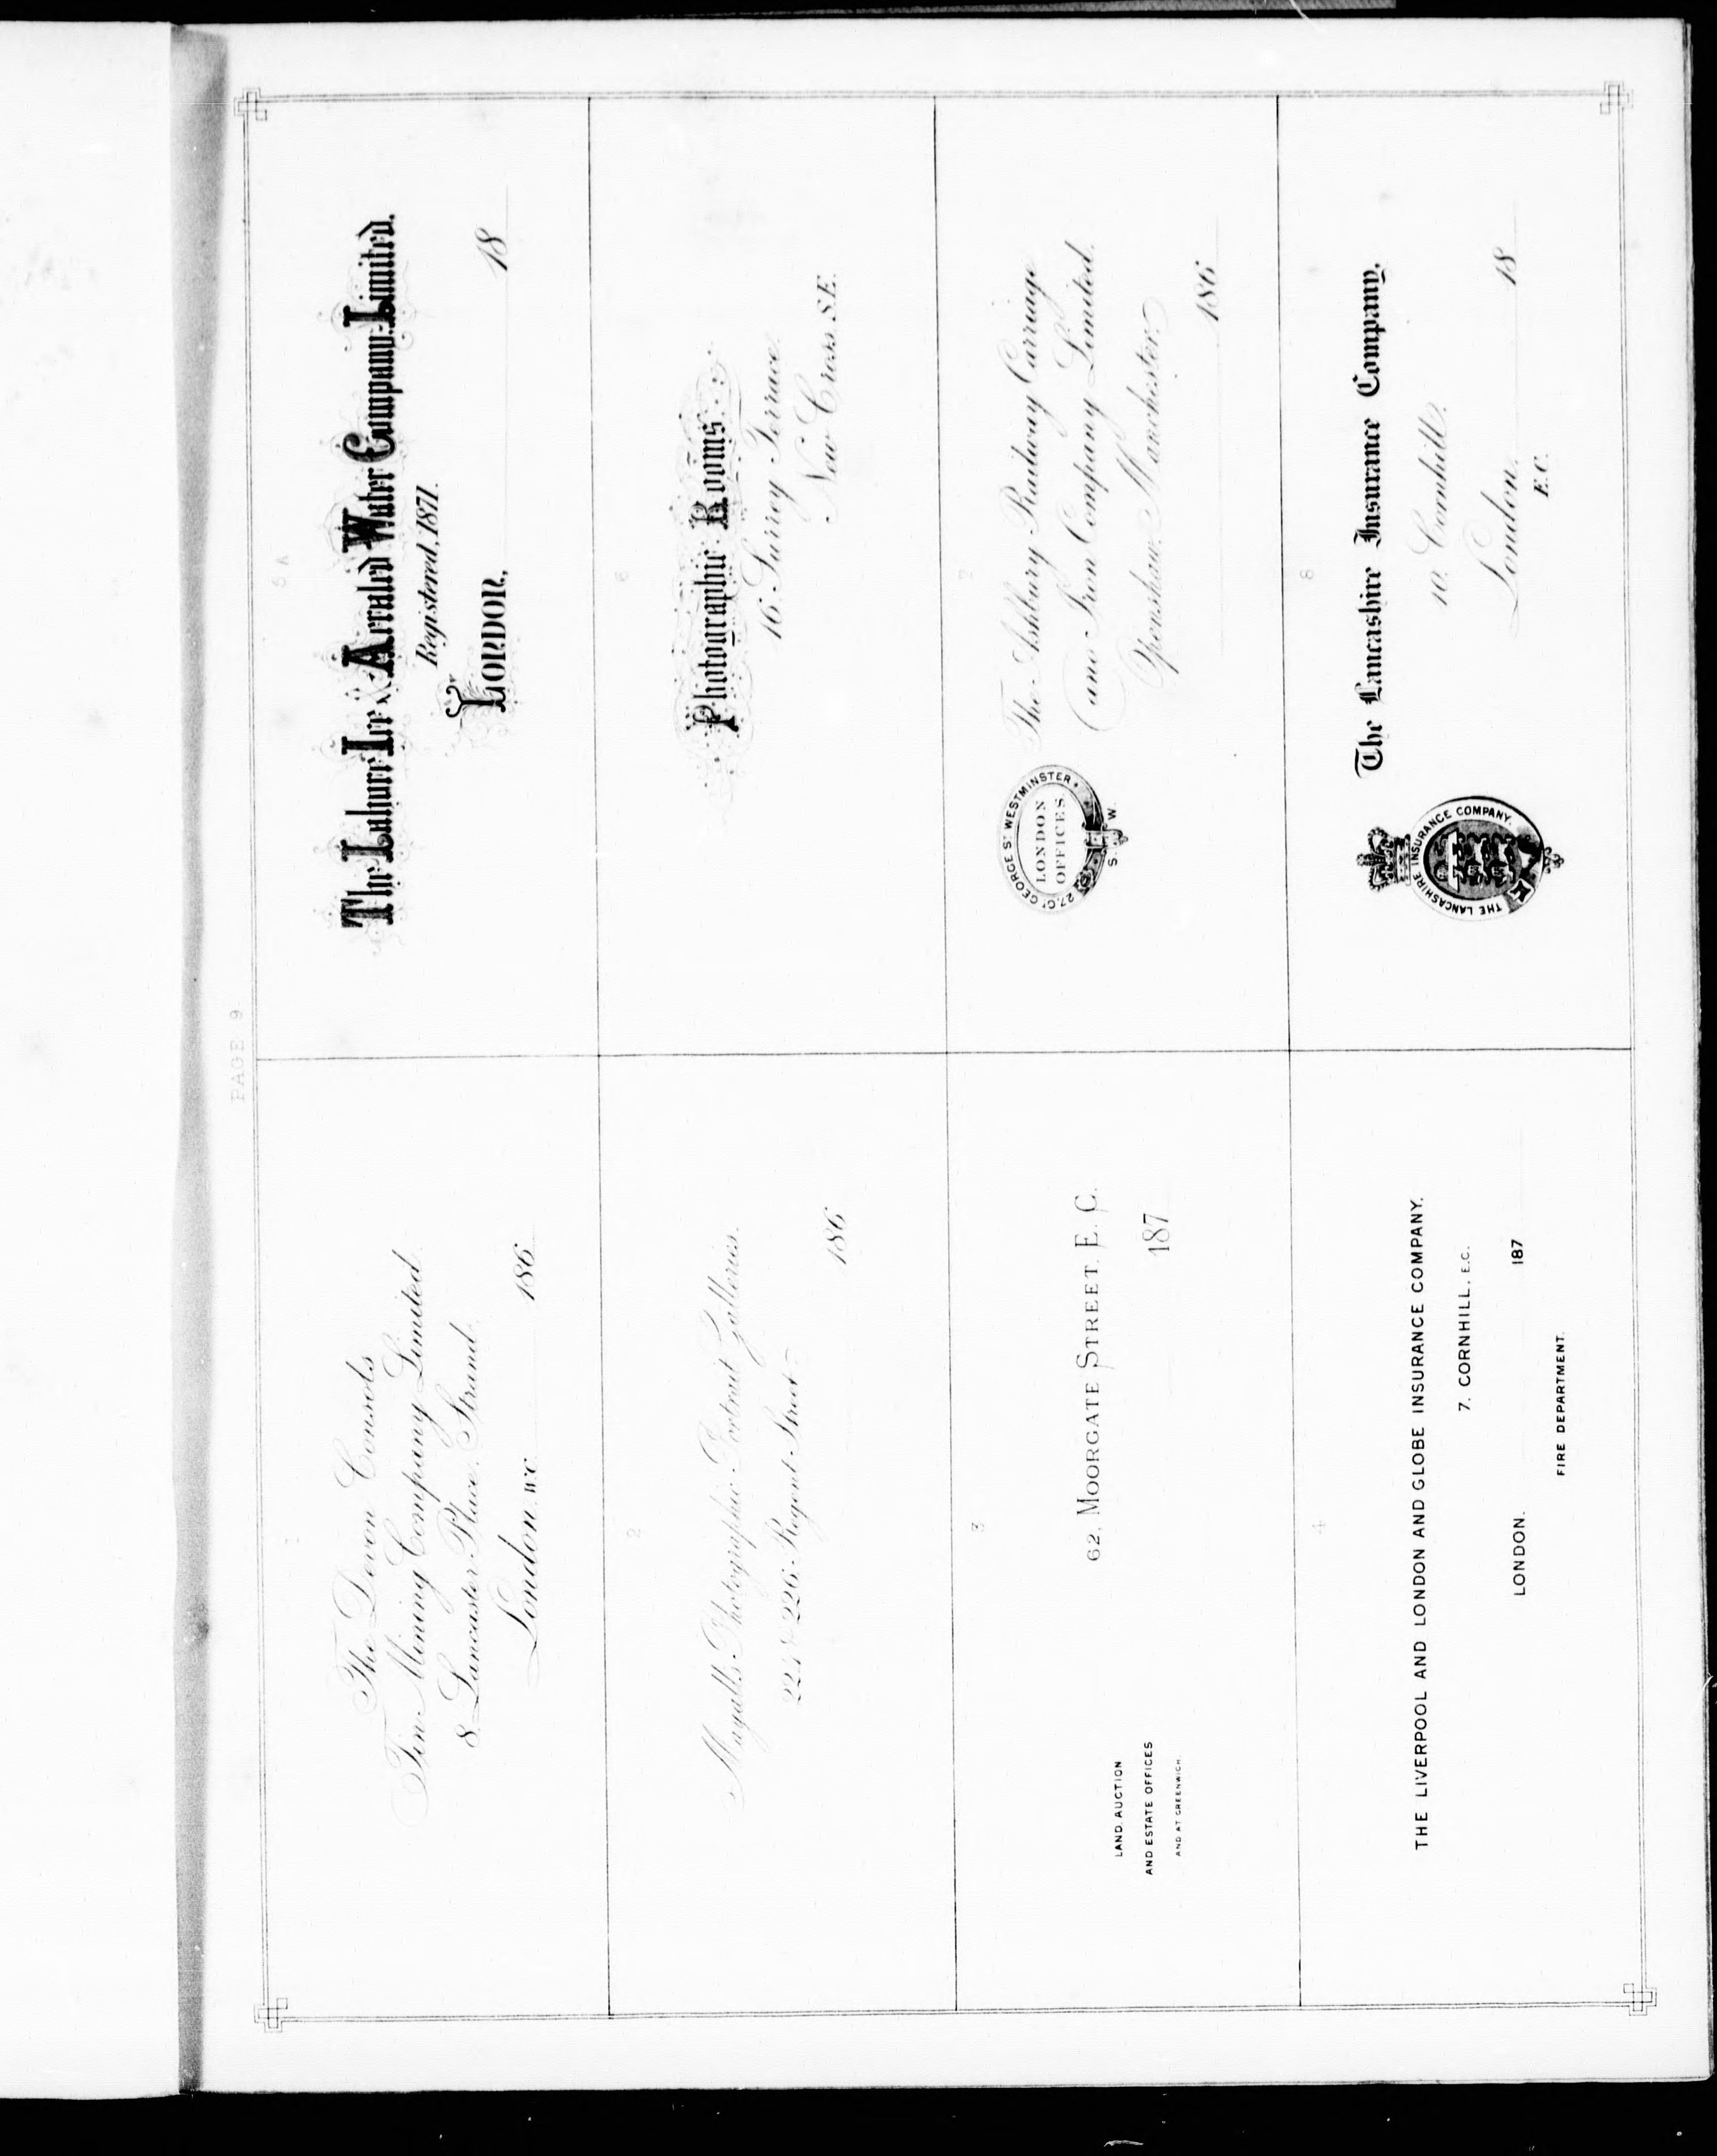 PAGE 9
1
The Devon Consols
Tin Mining Company Limited.
8, Lancaster Place, Strand.
London. W.C.
186
2
Mayall's Photographic Portrait Galleries.
224 & 226, Regent Street
186
3
62, MOORGATE STREET, E.C.
187
LAND, AUCTION
AND ESTATE OFFICES
AND AT GREENWICH.
4
THE LIVERPOOL AND LONDON AND GLOBE INSURANCE COMPANY.
7, CORNHILL, E.C.
LONDON.
187
FIRE DEPARTMENT.
5 A
The Lahore Ice & Aerated Water Company Limited.
Registered, 1871.
LONDON,
18
6
Photographic Rooms.
16, Surrey Terrace,
New Cross, S.E.
7
27, Gt GEORGE ST WESTMINSTER,
LONDON
OFFICES
S. W.
The Ashbury Railway Carriage
and Iron Company Limited.
Openshaw, Manchester,
186
8
THE LANCASHIRE INSURANCE COMPANY.
The Lancashire Insurance Company,
10, Cornhill,
London,
E.C.
18